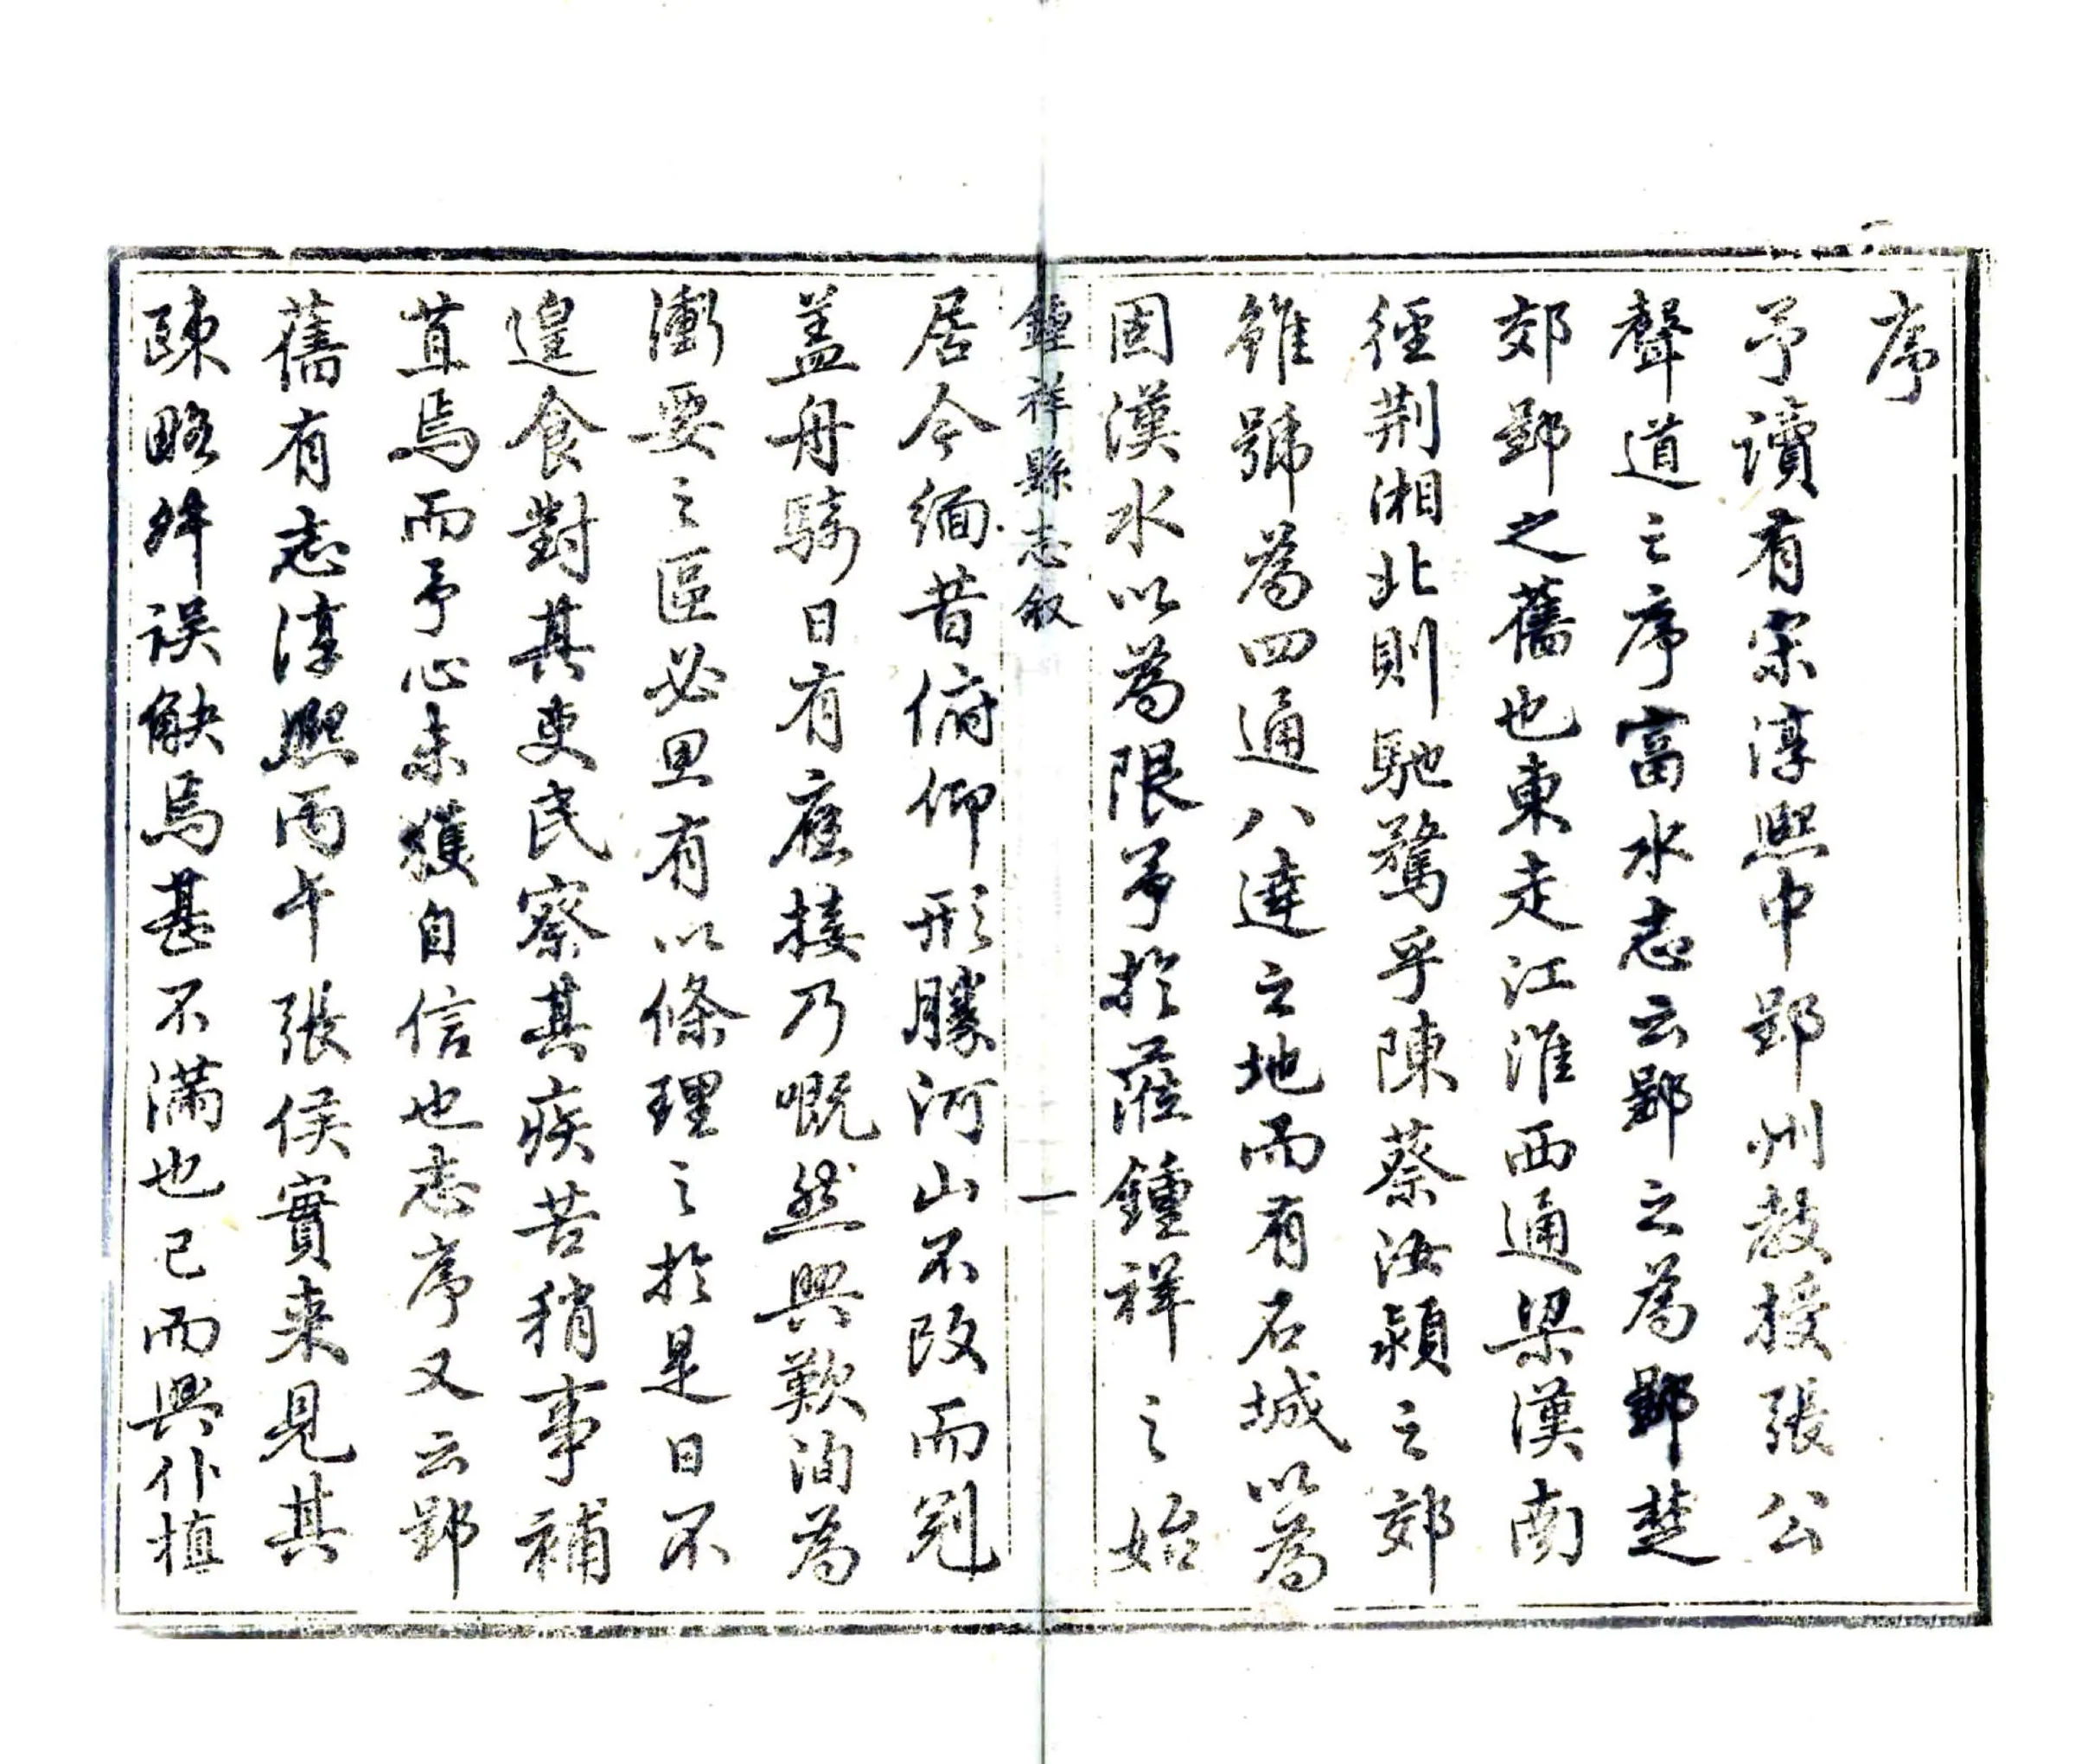 序
予讀有宋淳熙中郢州教授張公
聲道之序富水志云郢之為郢楚
郊郢之舊也東走江淮西通梁漢南
徑荆湘北則馳騖乎陳蔡汝潁之郊
雖號為四通八達之地而有石城以為
固漢水以為限予於蒞鍾祥之始
鍾祥縣志叙
一
居今緬昔俯仰形勝河山不改而冠
盖舟騎日有應接乃嘅然興歎洵為
衝要之區必思有以條理之於是日不
遑食對其吏民察其疾苦稍事補
苴焉而予心未獲自信也志序又云郢
舊有志淳熙丙午張侯實来見其
疎略舛误觖焉甚不滿也已而興仆植